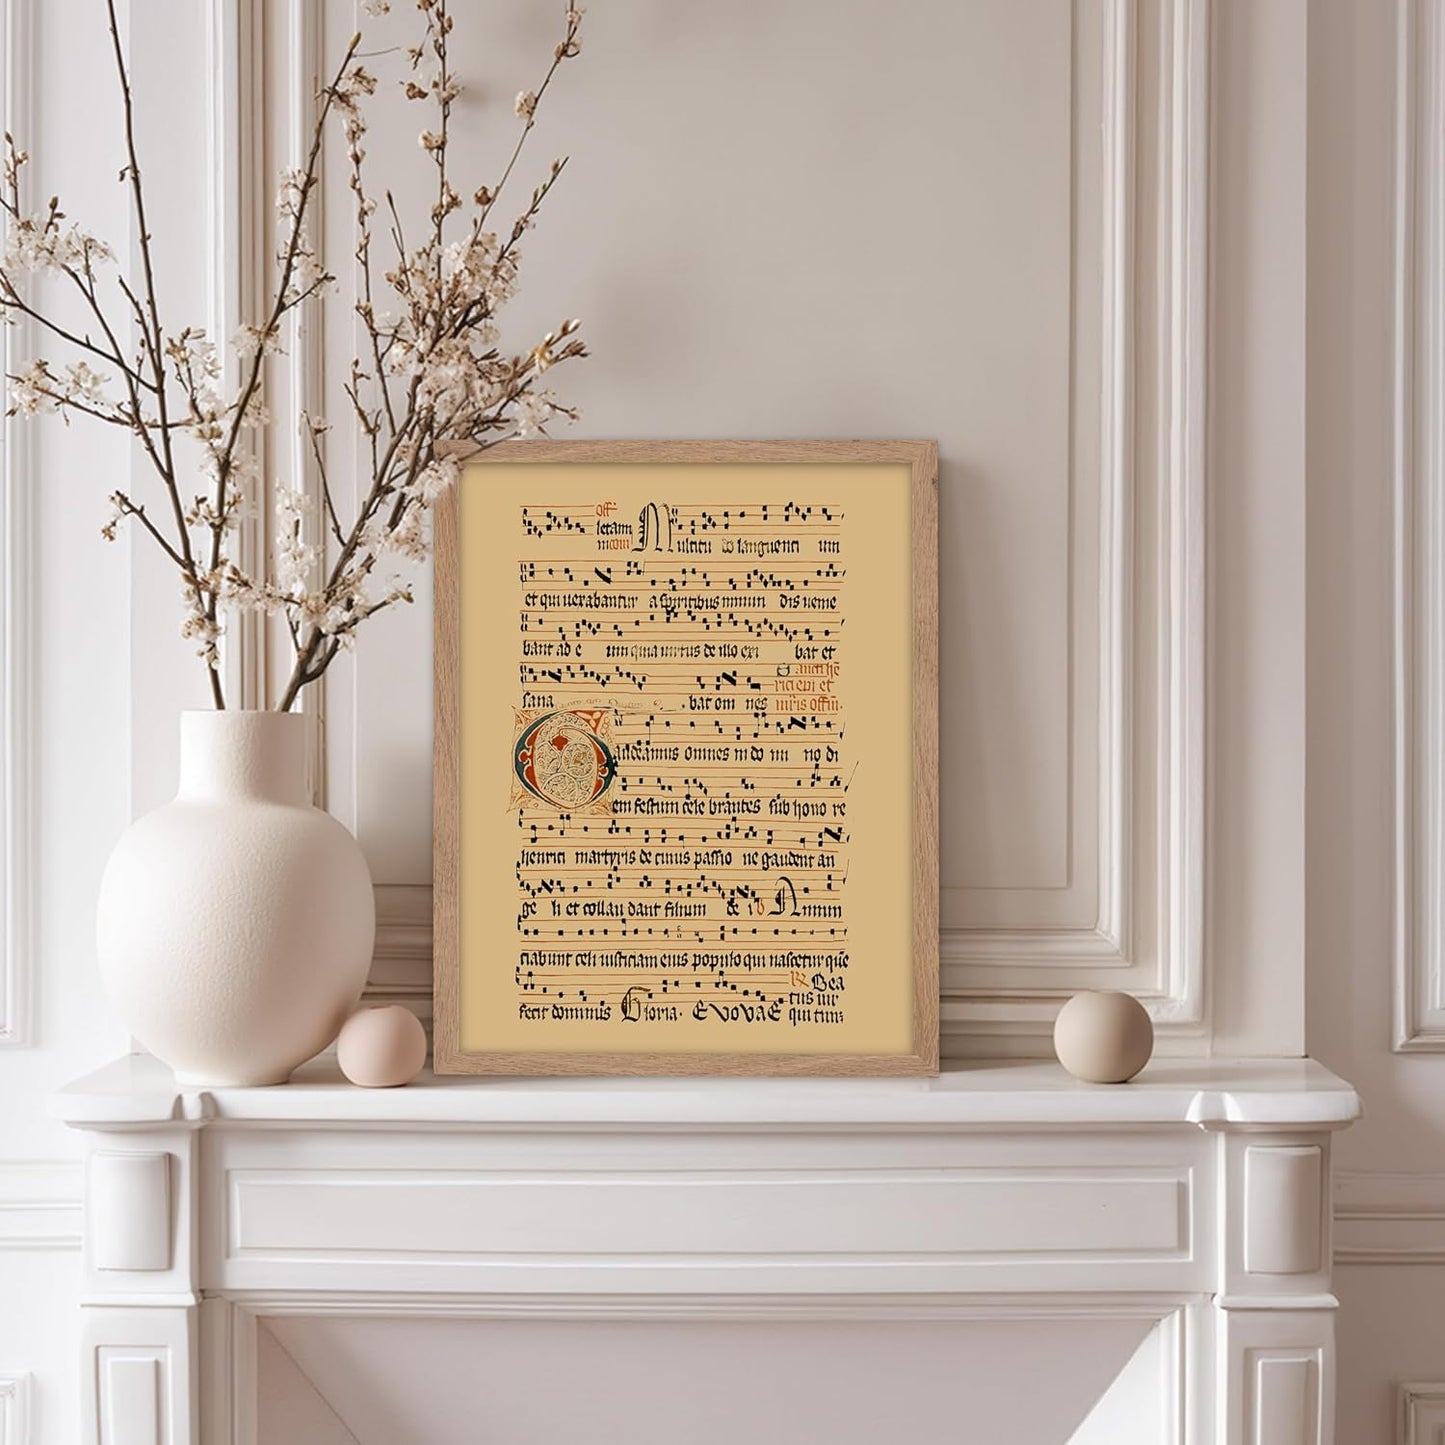 letann
Multitu do languenti um
et qui uexabantur a spiritibus inmun dis ueme
bant ad e um quia uirtus de illo exi bat et
sana bat om nes
Gaudeamus omnes in do mi no di
em festum cele brantes sub hono re
henrici martyris de cuius passio ne gaudent an
ge li et collau dant filium de i Annun
ciabunt celi iusticiam eius populo qui nascetur que
fecit dominus Gloria. EVOVAE
Bea
tus uir
qui